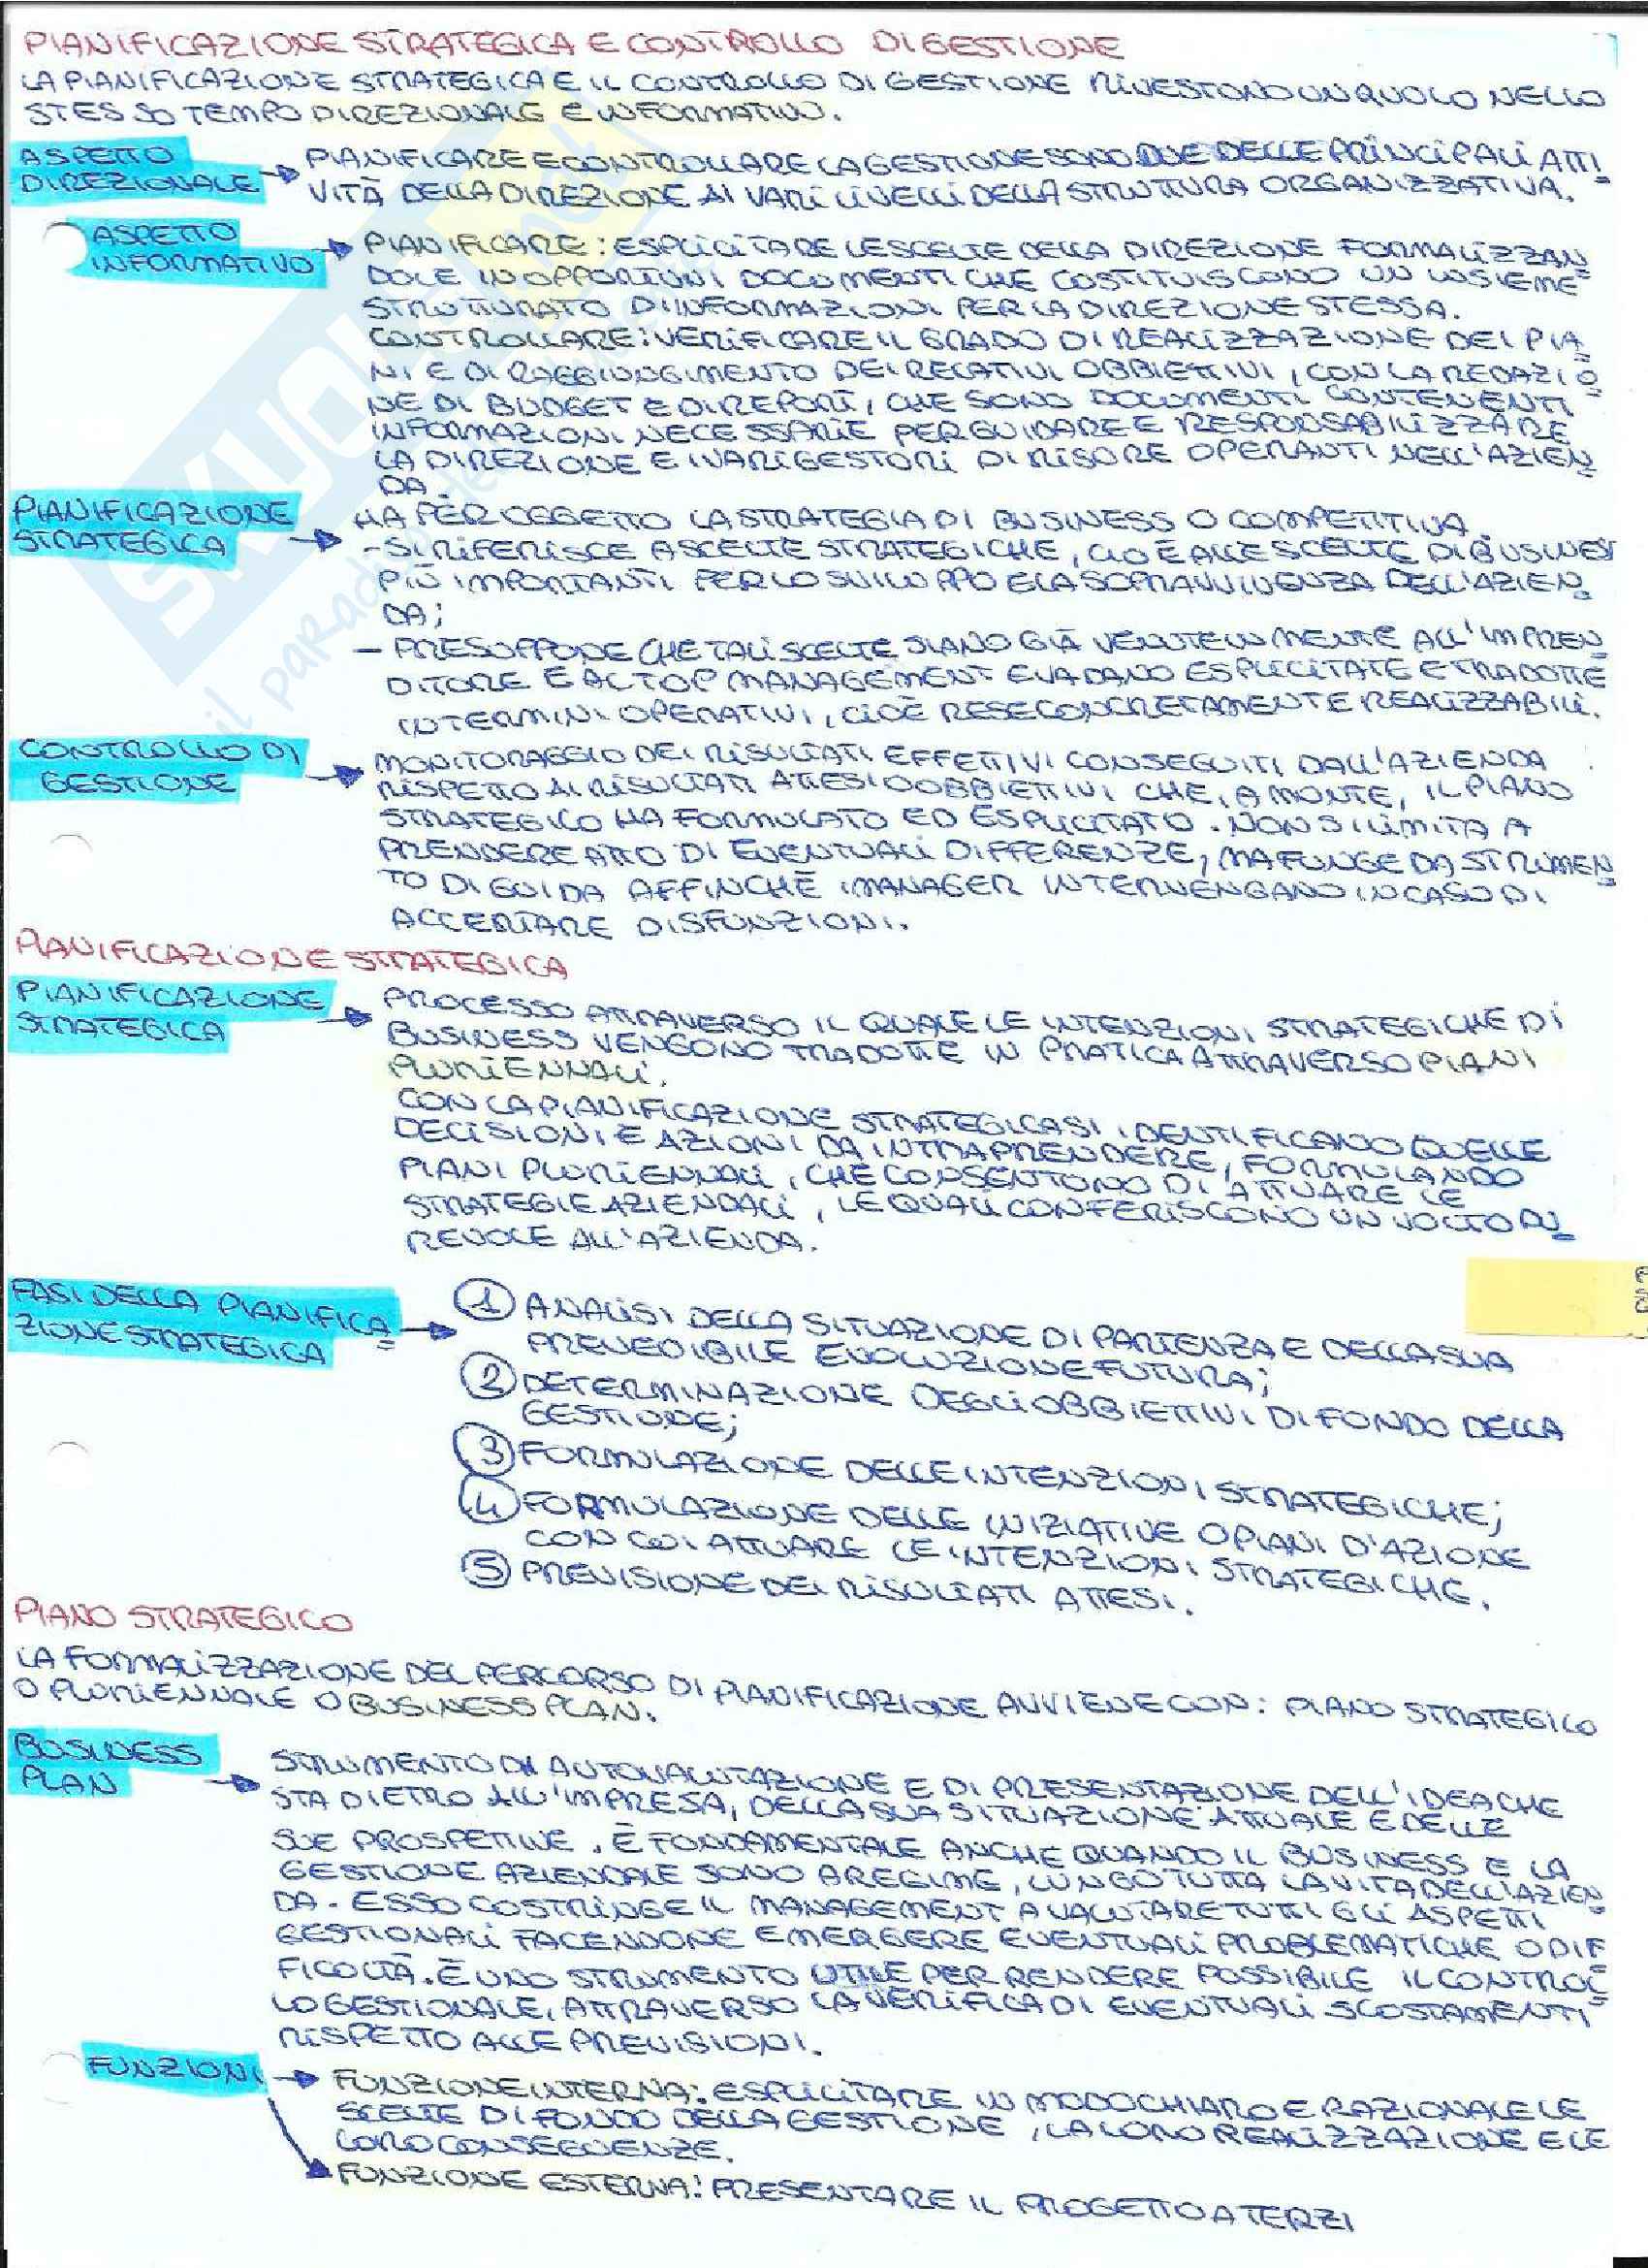 PIANIFICAZIONE STRATEGICA E CONTROLLO DI GESTIONE
LA PIANIFICAZIONE STRATEGICA E IL CONTROLLO DI GESTIONE RIVESTONO UN RUOLO NELLO
STESSO TEMPO DIREZIONALE E INFORMATIVO.
ASPETTO
DIREZIONALE
PIANIFICARE E CONTROLLARE LA GESTIONE SONO DUE DELLE PRINCIPALI ATTI=
VITÀ DELLA DIREZIONE AI VARI LIVELLI DELLA STRUTTURA ORGANIZZATIVA.
ASPETTO
INFORMATIVO
PIANIFICARE: ESPLICITARE LE SCELTE DELLA DIREZIONE FORMALIZZAN=
DOLE IN OPPORTUNI DOCUMENTI CHE COSTITUISCONO UN INSIEME
STRUTTURATO DI INFORMAZIONI PER LA DIREZIONE STESSA.
CONTROLLARE: VERIFICARE IL GRADO DI REALIZZAZIONE DEI PIA=
NI E DI RAGGIUNGIMENTO DEI RELATIVI OBBIETTIVI, CON LA REDAZIO=
NE DI BUDGET E DI REPORT, CHE SONO DOCUMENTI CONTENENTI
INFORMAZIONI NECESSARIE PER GUIDARE E RESPONSABILIZZARE
LA DIREZIONE E I VARI GESTORI DI RISORE OPERANTI NELL'AZIEN=
DA.
PIANIFICAZIONE
STRATEGICA
HA PER OGGETTO LA STRATEGIA DI BUSINESS O COMPETITIVA.
- SI RIFERISCE A SCELTE STRATEGICHE, CIOÈ ALLE SCELTE DI BUSINESS
PIÙ IMPORTANTI PER LO SVILUPPO E LA SOPRAVVIVENZA DELL'AZIEN=
DA;
- PRESUPPONE CHE TALI SCELTE SIANO GIÀ VENUTE IN MENTE ALL'IMPREN=
DITORE E AL TOP MANAGEMENT E VADANO ESPLICITATE E TRADOTTE
IN TERMINI OPERATIVI, CIOÈ RESE CONCRETAMENTE REALIZZABILI.
CONTROLLO DI
GESTIONE
MONITORAGGIO DEI RISULTATI EFFETTIVI CONSEGUITI DALL'AZIENDA
RISPETTO AI RISULTATI ATTESI O OBBIETTIVI CHE, A MONTE, IL PIANO
STRATEGICO HA FORMULATO ED ESPLICITATO. NON SI LIMITA A
PRENDERE ATTO DI EVENTUALI DIFFERENZE, MA FUNGE DA STRUMEN=
TO DI GUIDA AFFINCHÈ I MANAGER INTERVENGANO IN CASO DI
ACCERTARE DISFUNZIONI.
PIANIFICAZIONE STRATEGICA
PIANIFICAZIONE
STRATEGICA
PROCESSO ATTRAVERSO IL QUALE LE INTENZIONI STRATEGICHE DI
BUSINESS VENGONO TRADOTTE IN PRATICA ATTRAVERSO PIANI
PLURIENNALI.
CON LA PIANIFICAZIONE STRATEGICA SI IDENTIFICANO QUELLE
DECISIONI E AZIONI DA INTRAPRENDERE, FORMULANDO
PIANI PLURIENNALI, CHE CONSENTONO DI ATTUARE LE
STRATEGIE AZIENDALI, LE QUALI CONFERISCONO UN VOLTO DU=
REVOLE ALL'AZIENDA.
FASI DELLA PIANIFICA=
ZIONE STRATEGICA
1 ANALISI DELLA SITUAZIONE DI PARTENZA E DELLA SUA
PREVEDIBILE EVOLUZIONE FUTURA;
2 DETERMINAZIONE DEGLI OBBIETTIVI DI FONDO DELLA
GESTIONE;
3 FORMULAZIONE DELLE INTENZIONI STRATEGICHE;
4 FORMULAZIONE DELLE INIZIATIVE O PIANI D'AZIONE
CON CUI ATTUARE LE INTENZIONI STRATEGICHE.
5 PREVISIONE DEI RISULTATI ATTESI.
PIANO STRATEGICO
LA FORMALIZZAZIONE DEL PERCORSO DI PIANIFICAZIONE AVVIENE CON: PIANO STRATEGICO
O PLURIENNALE O BUSINESS PLAN.
BUSINESS
PLAN
STRUMENTO DI AUTOVALUTAZIONE E DI PRESENTAZIONE DELL'IDEA CHE
STA DIETRO ALL'IMPRESA, DELLA SUA SITUAZIONE ATTUALE E DELLE
SUE PROSPETTIVE. È FONDAMENTALE ANCHE QUANDO IL BUSINESS E LA
GESTIONE AZIENDALE SONO A REGIME, LUNGO TUTTA LA VITA DELL'AZIEN=
DA. ESSO COSTRINGE IL MANAGEMENT A VALUTARE TUTTI GLI ASPETTI
GESTIONALI FACENDONE EMERGERE EVENTUALI PROBLEMATICHE O DIF
FICOLTÀ. È UNO STRUMENTO UTILE PER RENDERE POSSIBILE IL CONTROL=
LO GESTIONALE, ATTRAVERSO LA VERIFICA DI EVENTUALI SCOSTAMENTI
RISPETTO ALLE PREVISIONI.
FUNZIONI
FUNZIONE INTERNA: ESPLICITARE IN MODO CHIARO E RAZIONALE LE
SCELTE DI FONDO DELLA GESTIONE, LA LORO REALIZZAZIONE E LE
LORO CONSEGUENZE.
FUNZIONE ESTERNA: PRESENTARE IL PROGETTO A TERZI